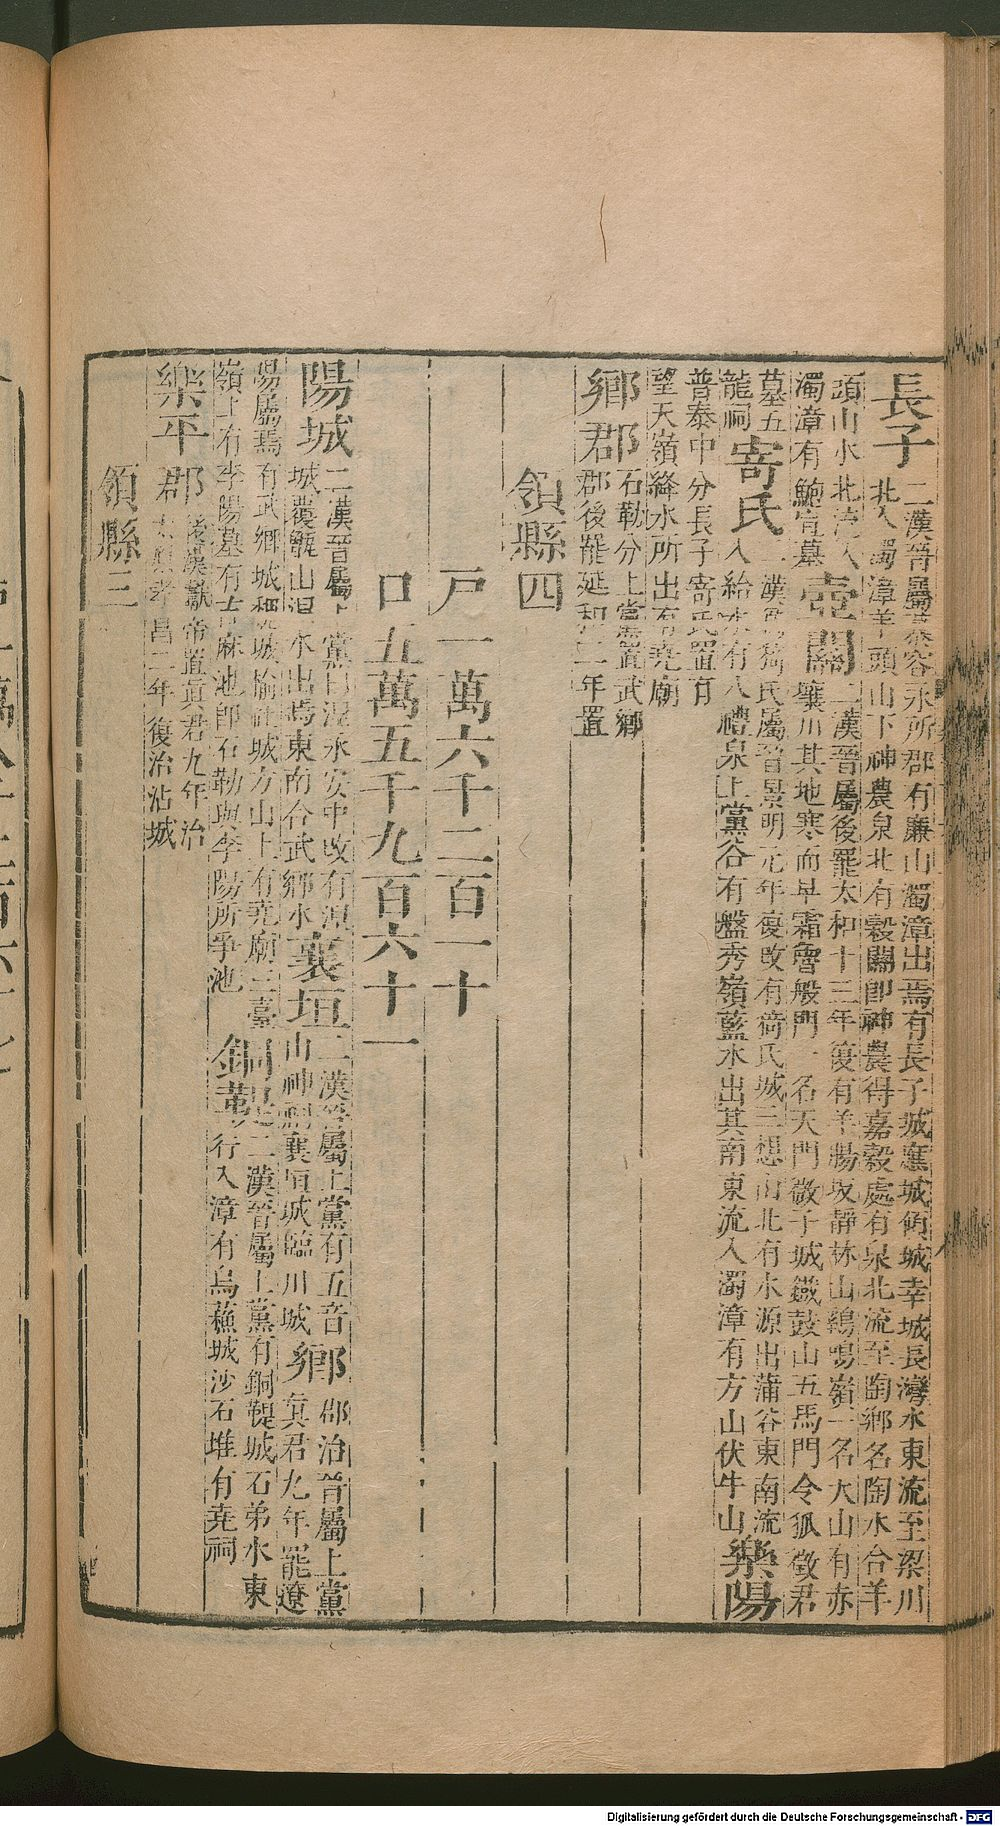 長子二漢晉屬慕容永所郡有廉山濁漳出焉有長子城䧹城倚城幸城長灣水東流至梁川
北入濁漳羊頭山下神農泉北有穀關即神農得嘉穀處有泉北流至陶鄉名陶水合羊
頭山水北流入 壺關二漢晉屬後罷太和十三年復有羊腸坂靜林山鷄鳴嶺一名大山有赤
濁漳有鮑宣墓 壤川其地寒而早霜魯般門一名天門敬子城鐵鼓山五馬門令狐徵君
墓五 寄氏二漢猗氏屬晉景明元年復改有猗氏城三想山北有水源出蒲谷東南流
龍祠 入給水有八禮泉上黨谷有盤秀嶺藍水出其南東流入濁漳有方山伏牛山 樂陽
普泰中分長子寄氏置有
望天嶺絳水所出有堯廟
鄉郡石勒分上黨置武鄉
郡後罷延和二年置
領縣四
戶一萬六千二百一十
口五萬五千九百六十一
陽城二漢晉屬上黨曰涅永安中改有涅
城覆甑山涅水出焉東南合武鄉水 襄垣二漢晉屬上黨有五音
山神祠襄垣城臨川城 鄉郡治晉屬上黨
真君九年罷遼
陽屬焉有武鄉城魏城榆社城方山上有堯廟三臺
嶺上有李陽墓有古麻池即石勒與李陽所爭池 銅鞮二漢晉屬上黨有銅鞮城石弟水東
行入漳有烏蘓城沙石堆有堯祠
樂平郡後漢獻帝置真君九年治
太原孝昌二年復治沾城
領縣三
Digitalisierung gefördert durch die Deutsche Forschungsgemeinschaft - DFG